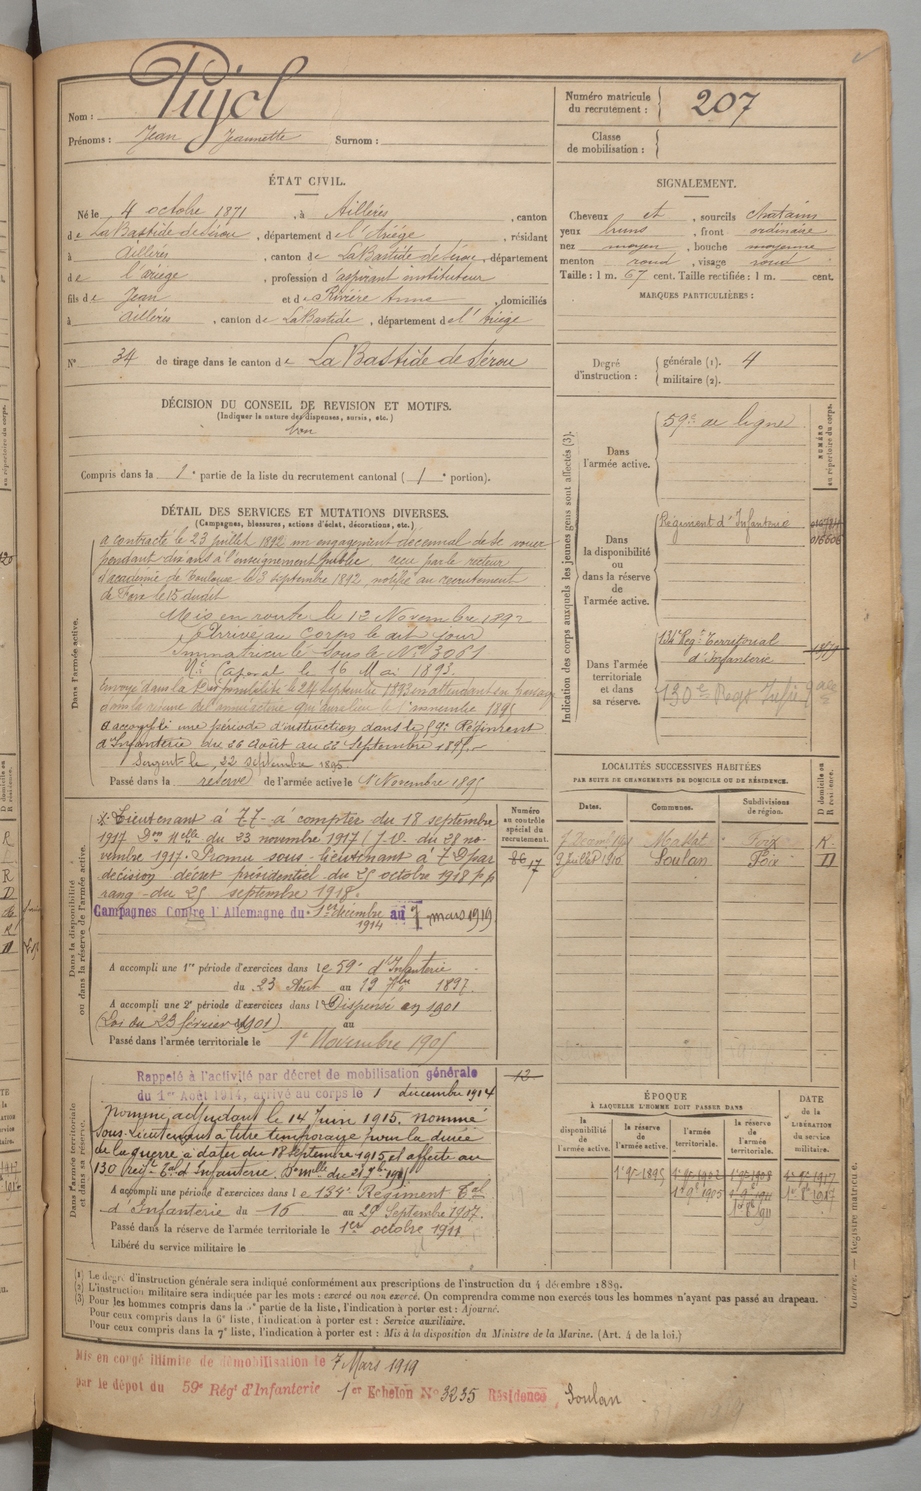 Nom : Pujol
Prénoms : Jean Jeannette Surnom :
Numéro matricule du recrutement : 207
Classe de mobilisation :
ÉTAT CIVIL.
Né le 4 octobre 1871, à Aillères, canton
de La Bastide de Sérou, département de l'Ariège, résidant
à Aillères, canton de La Bastide de Sérou, département
de l'ariège, profession d'aspirant instituteur
fils de Jean et de Rivière Anne, domiciliés
à Aillères, canton de La Bastide, département de l'Ariège
N° 34 de tirage dans le canton de La Bastide de Sérou
SIGNALEMENT.
Cheveux et, sourcils chatains
yeux bruns, front ordinaire
nez moyen, bouche moyenne
menton rond, visage rond
Taille : 1 m. 67 cent. Taille rectifiée : 1 m. cent.
MARQUES PARTICULIÈRES :
Degré d'instruction : générale (1). 4
militaire (2).
DÉCISION DU CONSEIL DE REVISION ET MOTIFS.
(Indiquer la nature des dispenses, sursis, etc.)
bon
Compris dans la 1e partie de la liste du recrutement cantonal (1e portion).
DÉTAIL DES SERVICES ET MUTATIONS DIVERSES.
(Campagnes, blessures, actions d'éclat, décorations, etc.)
Dans l'armée active.
a contracté le 23 juillet 1892 un engagement décennal de se vouer
pendant dix ans à l'enseignement public reçu par le recteur
d'académie de Toulouse le 3 septembre 1892, notifié au recrutement
de Foix le 15 dudit
Mis en route le 12 Novembre 1892
Arrivé au Corps le dit jour
Immatriculé sous le N° 3081
N.é Caporal le 16 Mai 1893.
Envoyé dans la disponibilité le 24 septembre 1893 en attendant son passage
dans la réserve de l'armée active qui aura lieu le 1er novembre 1895
A accompli une période d'instruction dans le 59e Régiment
d'Infanterie du 26 août au 22 Septembre 1895
Sergent le 22 septembre 1895
Passé dans la réserve de l'armée active le 1er Novembre 1895
Indication des corps auxquels les jeunes gens sont affectés (3).
NUMÉRO au répertoire du corps.
Dans l'armée active. 59e de ligne
Dans la disponibilité ou dans la réserve de l'armée active. Régiment d'Infanterie
Dans l'armée territoriale et dans sa réserve. 134e Regt Territorial
d'Infanterie
130e Regt Infie
Dans la disponibilité ou dans la réserve de l'armée active.
Numéro au contrôle spécial du recrutement.
Lieutenant à T.T. à compter du 18 septembre
1917 Don Melle du 23 novembre 1917 (J.O. du 28 no-
vembre 1917. Promu sous-lieutenant à T D par
décision décret présidentiel du 25 octobre 1918 p. p.
rang du 25 septembre 1918.
Campagnes Contre l'Allemagne du 1er décembre 1914 au 7 mars 1919
17
A accompli une 1re période d'exercices dans le 59e d'Infanterie
du 23 Août au 19 7bre 1897.
A accompli une 2e période d'exercices dans l Dispensé en 1901
(Loi du 23 février 1901) au
Passé dans l'armée territoriale le 1er Novembre 1905
LOCALITÉS SUCCESSIVES HABITÉES
PAR SUITE DE CHANGEMENTS DE DOMICILE OU DE RÉSIDENCE.
Dates. Communes. Subdivisions de région. D domicile ou R résidence.
Massat Foix R
9 Juillet 1910 Soulan Foix D
Dans l'armée territoriale et dans sa réserve.
Rappelé à l'activité par décret de mobilisation générale
du 1er Août 1914, arrivé au corps le 1 décembre 1914
12
Nommé adjudant le 14 Juin 1915. nommé
sous-lieutenant à titre temporaire pour la durée
de la guerre à dater du 18 septembre 1915 et affecté au
130 Regt Tal d'Infanterie.
A accompli une période d'exercices dans le 134e Régiment Tal
d'Infanterie du 16 au 29 Septembre 1907.
Passé dans la réserve de l'armée territoriale le 1er octobre 1911
Libéré du service militaire le
ÉPOQUE
À LAQUELLE L'HOMME DOIT PASSER DANS
DATE de la LIBÉRATION du service militaire.
la disponibilité de l'armée active. la réserve de l'armée active. l'armée territoriale. la réserve de l'armée territoriale.
1er 9e 1895
(1) Le degré d'instruction générale sera indiqué conformément aux prescriptions de l'instruction du 4 décembre 1889.
(2) L'instruction militaire sera indiquée par les mots : exercé ou non exercé. On comprendra comme non exercés tous les hommes n'ayant pas passé au drapeau.
(3) Pour les hommes compris dans la 5e partie de la liste, l'indication à porter est : Ajourné.
Pour ceux compris dans la 6e liste, l'indication à porter est : Service auxiliaire.
Pour ceux compris dans la 7e liste, l'indication à porter est : Mis à la disposition du Ministre de la Marine. (Art. 4 de la loi.)
Guerre. — Registre matricule.
Mis en congé illimité de démobilisation le 7 Mars 1919
par le dépot du 59e Rég' d'Infanterie 1er Echelon N° 3235 Résidence Soulan